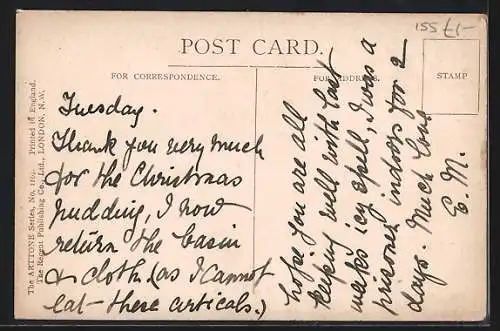 155 £1-
POST CARD.
FOR CORRESPONDENCE.
FOR ADDRESS.
STAMP
The ARTTONE Series, No. Printed in England.
The Regent Publishing Co., Ltd., LONDON, N.W.
Tuesday.
Thank you very much
for the Christmas
pudding, I now
return the basin
& cloth. (as I cannot
eat these articals.)
hope you are all
keeping well with last
weeks icy spell, I was a
prisoner indoors for 2
days. Much love
E. M.